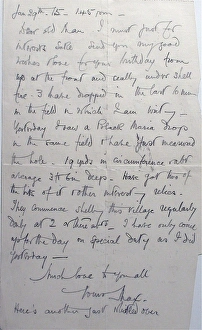 Jan 29th. 15 - 4.45 pm -
Dear old Man I must just for
interests sake send you my good
wishes for your birthday from
up at the front and really under shell
fire - 3 have dropped in the last 10 min
in the field in which I am
Yesterday I saw a Black Maria drop
in the same field & have just measured
the hole. 19 yds in circumference &
average 3 ft 6 in deep - Have got two of
the bits of it & other interesting relics.
They commence shelling this village regularly
daily at 2 or thereabouts. I have only come
up for the day on special duty as I did
Yesterday -
Much love to you all
Yours
Here's another just whistled over